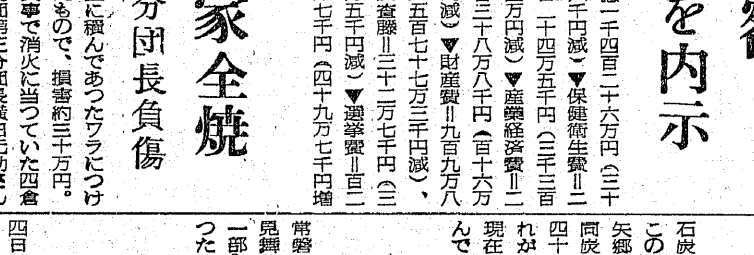 を内示
一千四百二十六万円（三十
千円減）▼保健衛生費＝二
一十四万五千円（三千三百
万円減）▼産業経済費＝二
三十八万八千円（百十六万
減）▼財産費＝九百九万八
五百七十七万三千円減）、
査藤＝三十二万七千円（三
五千円減）▼選挙費＝百二
七千円（四十九万七千円増
家全焼
分団長負傷
に積んであつたワラにつけ
もので、損害約三十万円。
事で消火に当つていた四倉
石炭
この
矢郷
同炭
四十
れが
現在
んで
常磐
見舞
一部
つた
四日